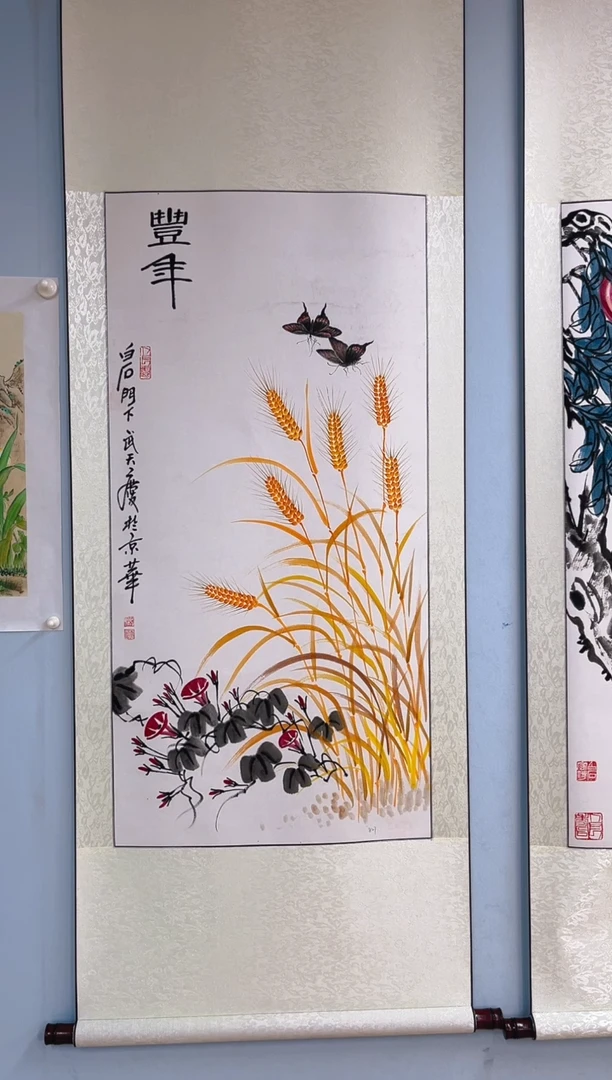 豐年
白石門下武天慶於京華